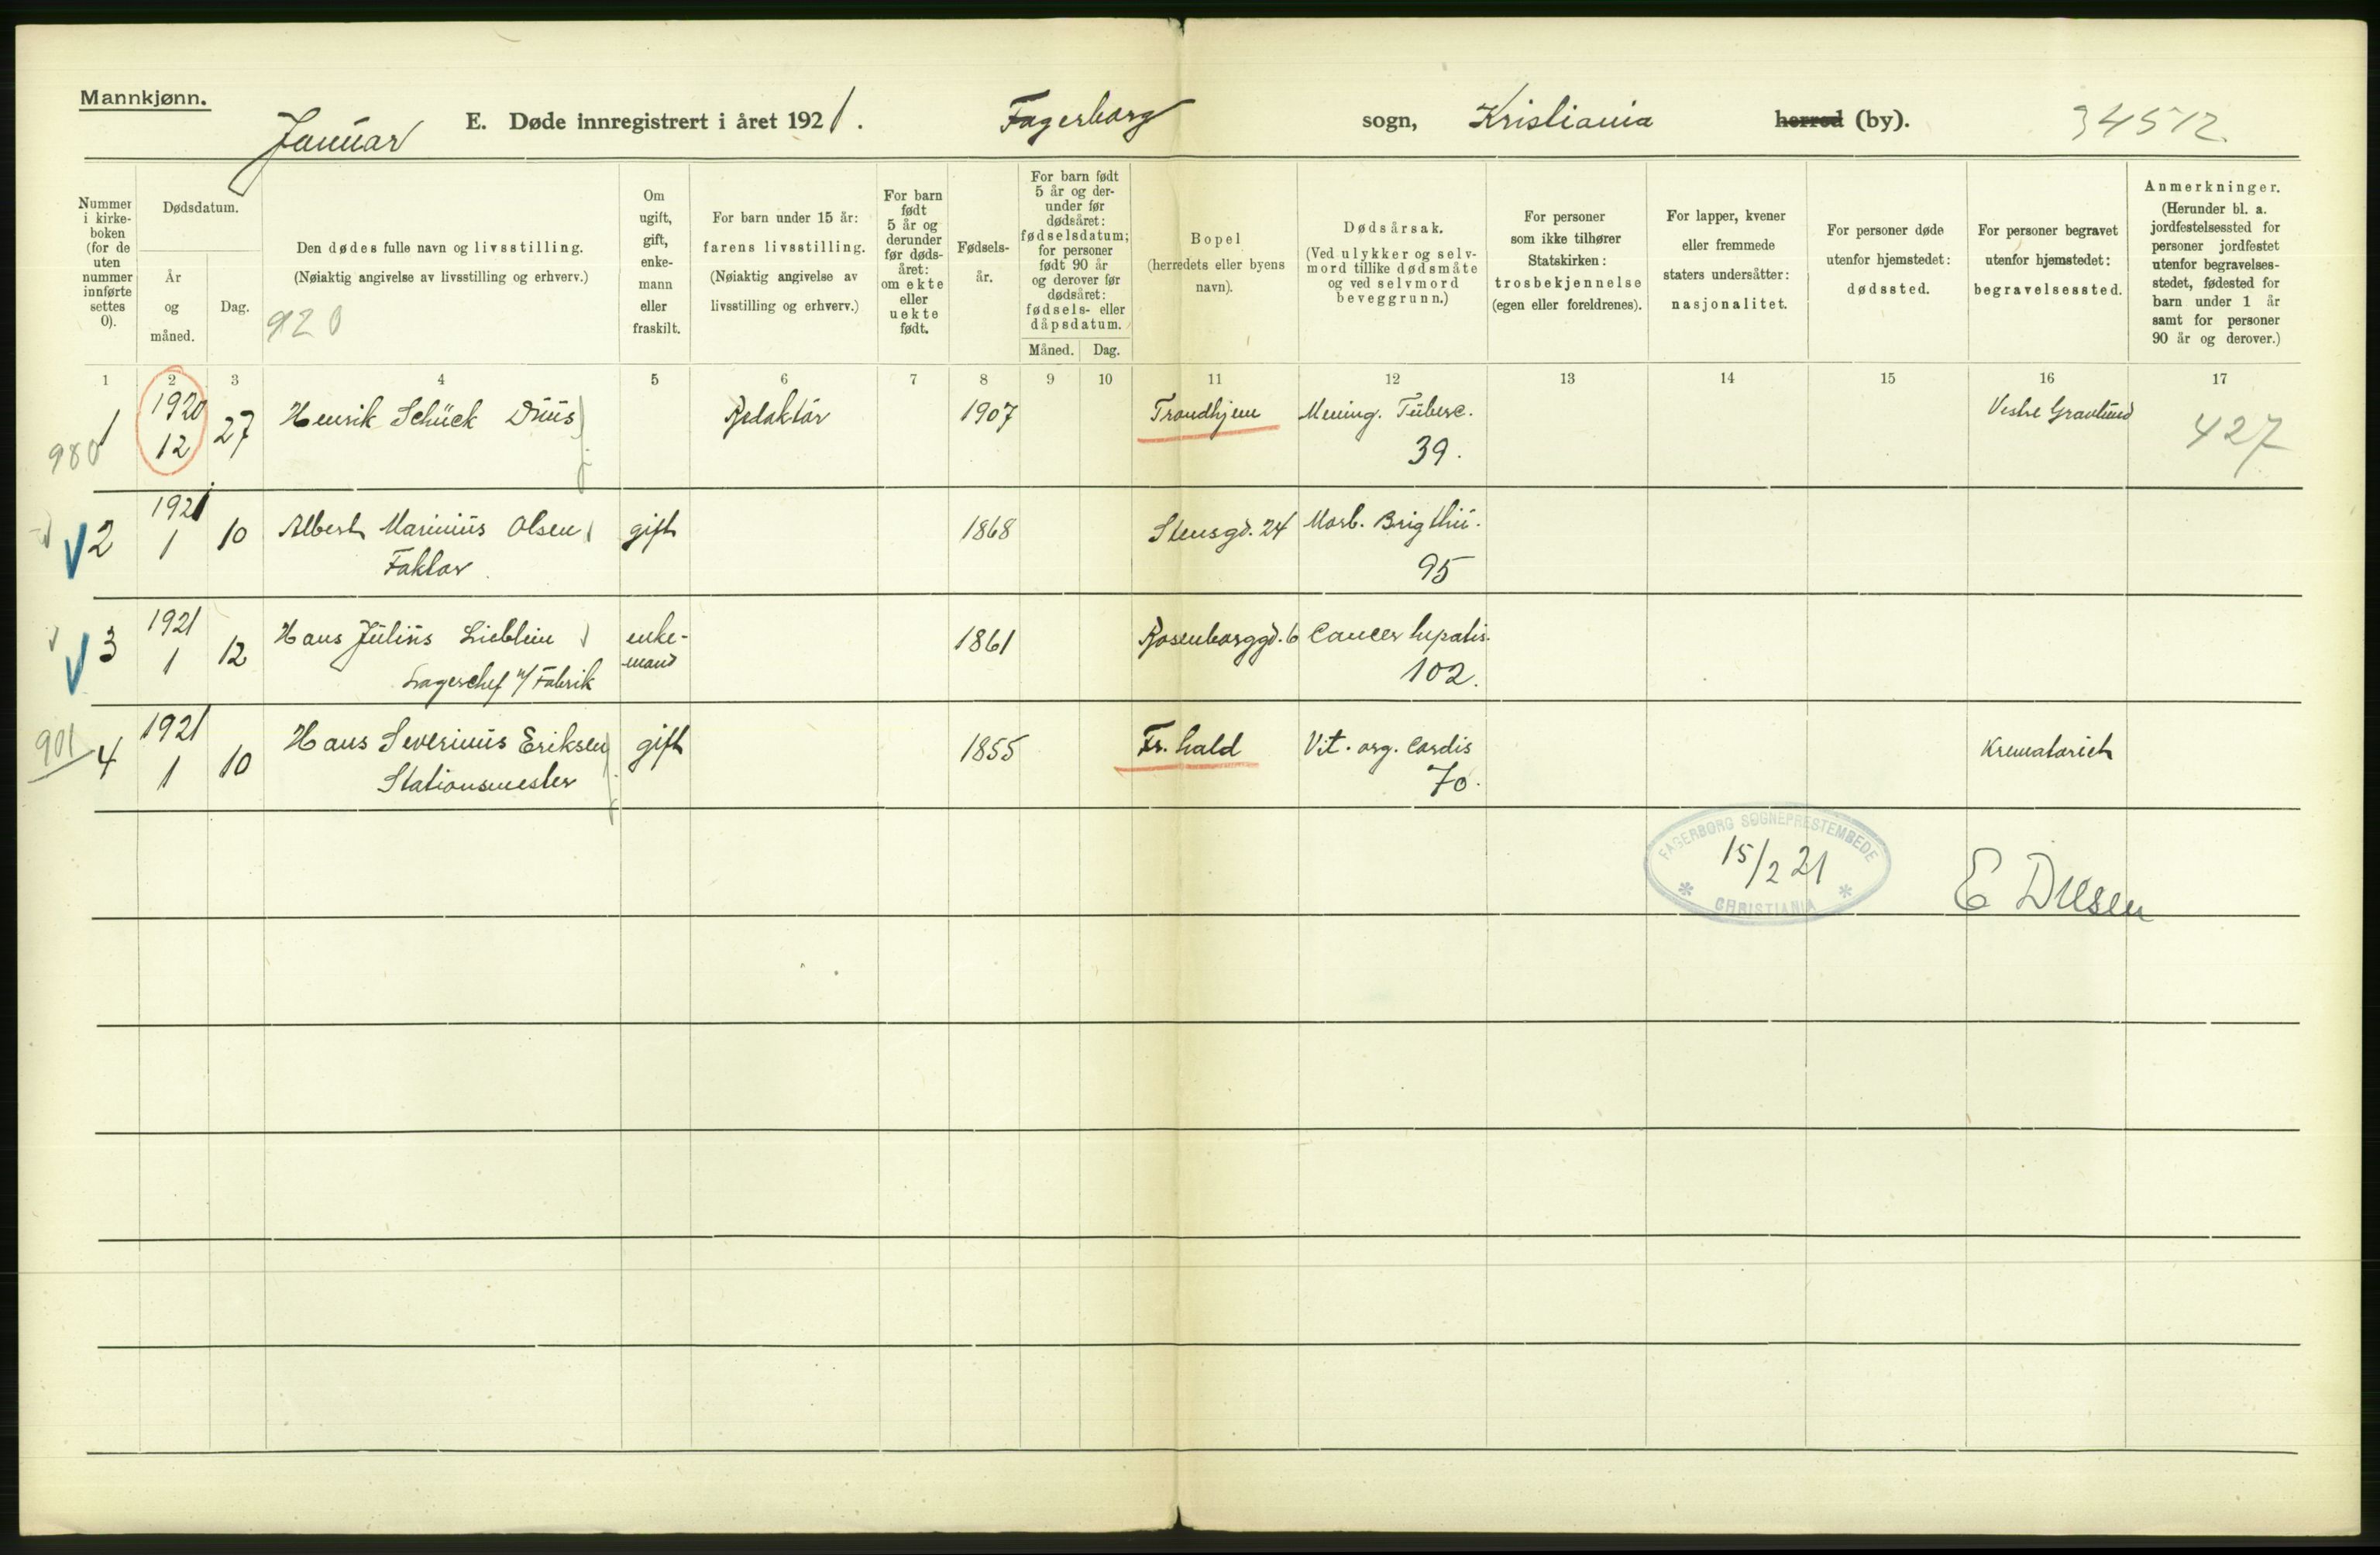 Mannkjønn.
Januar E. Døde innregistrert i året 1921. Fagerborg sogn, Kristiania herred (by). 34512
Nummer i kirke-boken (for de uten nummer innførte settes 0).
Dødsdatum.
År og måned.
Dag.
Den dødes fulle navn og livsstilling.
(Nøiaktig angivelse av livsstilling og erhverv.)
920
Om ugift, gift, enke-mann eller fraskilt.
For barn under 15 år:
farens livsstilling.
(Nøiaktig angivelse av livsstilling og erhverv.)
For barn født 5 år og derunder før døds-året: om ekte eller uekte født.
Fødsels-år.
For barn født 5 år og der-under før dødsåret: fødselsdatum; for personer født 90 år og derover før dødsåret: fødsels- eller dåpsdatum.
Måned. Dag.
Bopel
(herredets eller byens navn).
Dødsårsak.
(Ved ulykker og selv-mord tillike dødsmåte og ved selvmord beveggrunn.)
For personer som ikke tilhører Statskirken: trosbekjennelse (egen eller foreldrenes).
For lapper, kvener eller fremmede staters undersåtter: nasjonalitet.
For personer døde utenfor hjemstedet: dødssted.
For personer begravet utenfor hjemstedet: begravelsessted.
Anmerkninger.
(Herunder bl. a. jordfestelsessted for personer jordfestet utenfor begravelses-stedet, fødested for barn under 1 år samt for personer 90 år og derover.)
1 2 3 4 5 6 7 8 9 10 11 12 13 14 15 16 17
980 1 1920 12 27 Henrik Schück Duus Redaktør 1907 Trondhjem Mening. Tuberc. 39. Vestre Gravlund 427
2 1921 1 10 Albert Marinius Olsen Faktor gift 1868 Stensgd. 24 Morb. Brigthii. 95
3 1921 1 12 Hans Julius Lieblein Lagerchef v/ Fabrik enke-mand 1861 Rosenborggd. 6 Cancer hepatis. 102.
901 4 1921 1 10 Hans Severinus Eriksen Stationsmester gift 1855 Fr. hald Vit. org. cordis 70. Krematoriet
FAGERBORG SOGNEPRESTEMBEDE
15/2 21
CHRISTIANIA
E